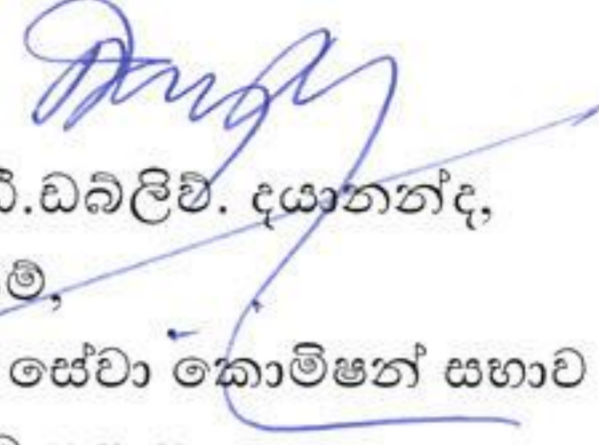 .ඩබ්ලිව්. දයානන්ද,
සේවා කොමිෂන් සභාව